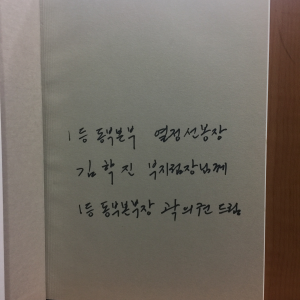 1등 동부본부 열정선봉장
김학진 부지점장님께
1등 동부본부장 곽의권 드림